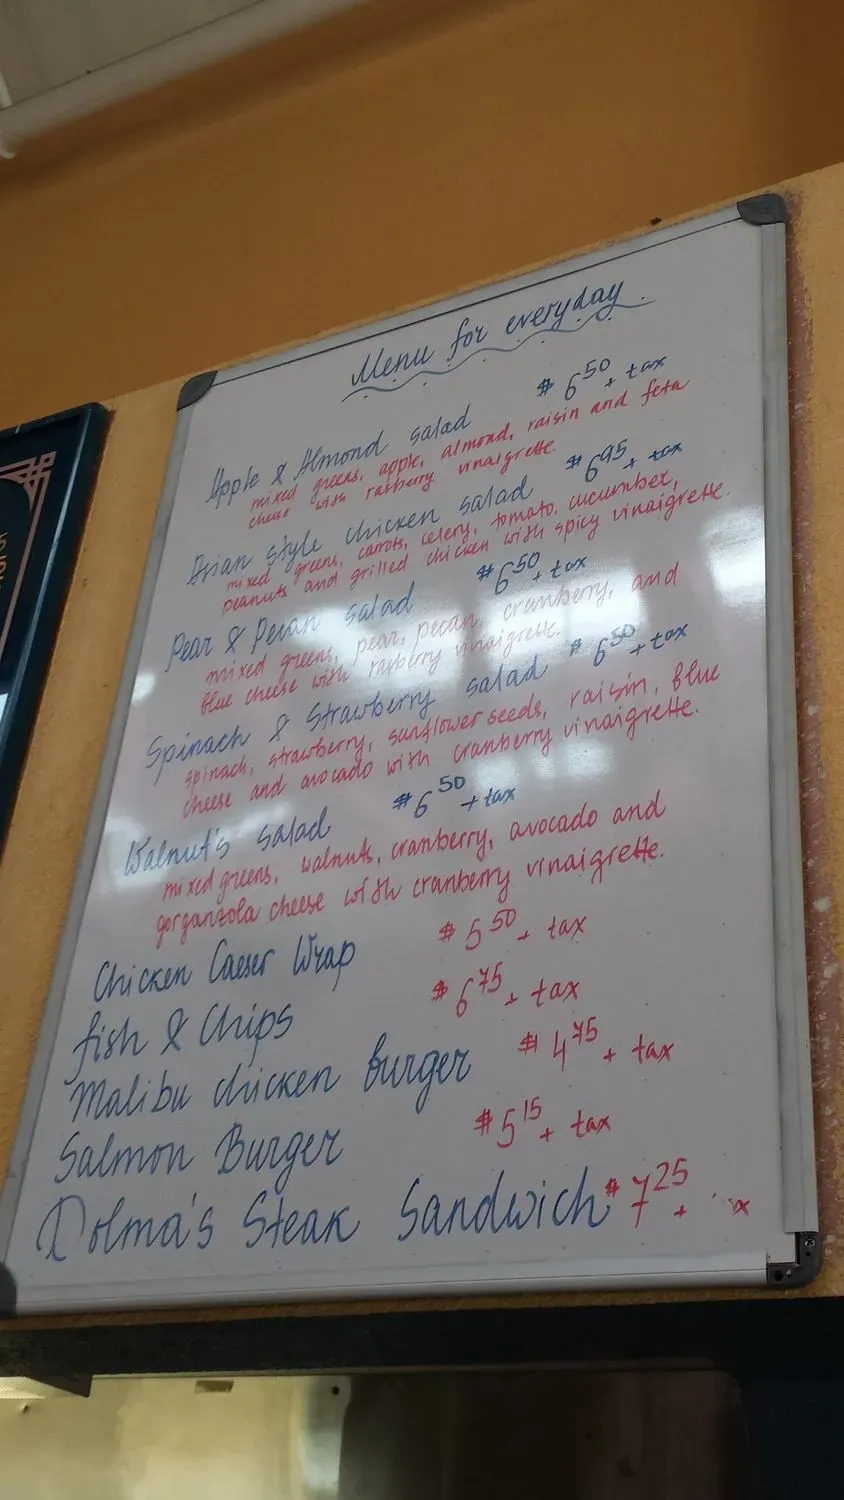 Menu for everyday
Apple & Almond salad $6.50 + tax
mixed greens, apple, almond, raisin and feta
chese with rasberry vinaigrette.
Asian style chicken salad $6.95 + tax
mixed greens, carrots, celery, tomato, cucumber,
peanuts and grilled chicken with spicy vinaigrette.
Pear & Pecan salad $6.50 + tax
mixed greens, pear, pecan, cranberry, and
blue cheese with rasberry vinaigrette.
Spinach & Strawberry salad $6.50 + tax
spinach, strawberry, sunflower seeds, raisin, blue
cheese and avocado with cranberry vinaigrette.
Walnut's salad $6.50 + tax
mixed greens, walnuts, cranberry, avocado and
gorganzola cheese with cranberry vinaigrette.
Chicken Caeser Wrap $5.50 + tax
fish & Chips $6.75 + tax
Malibu chicken burger $4.75 + tax
Salmon Burger $5.15 + tax
Dolma's Steak Sandwich $7.25 +